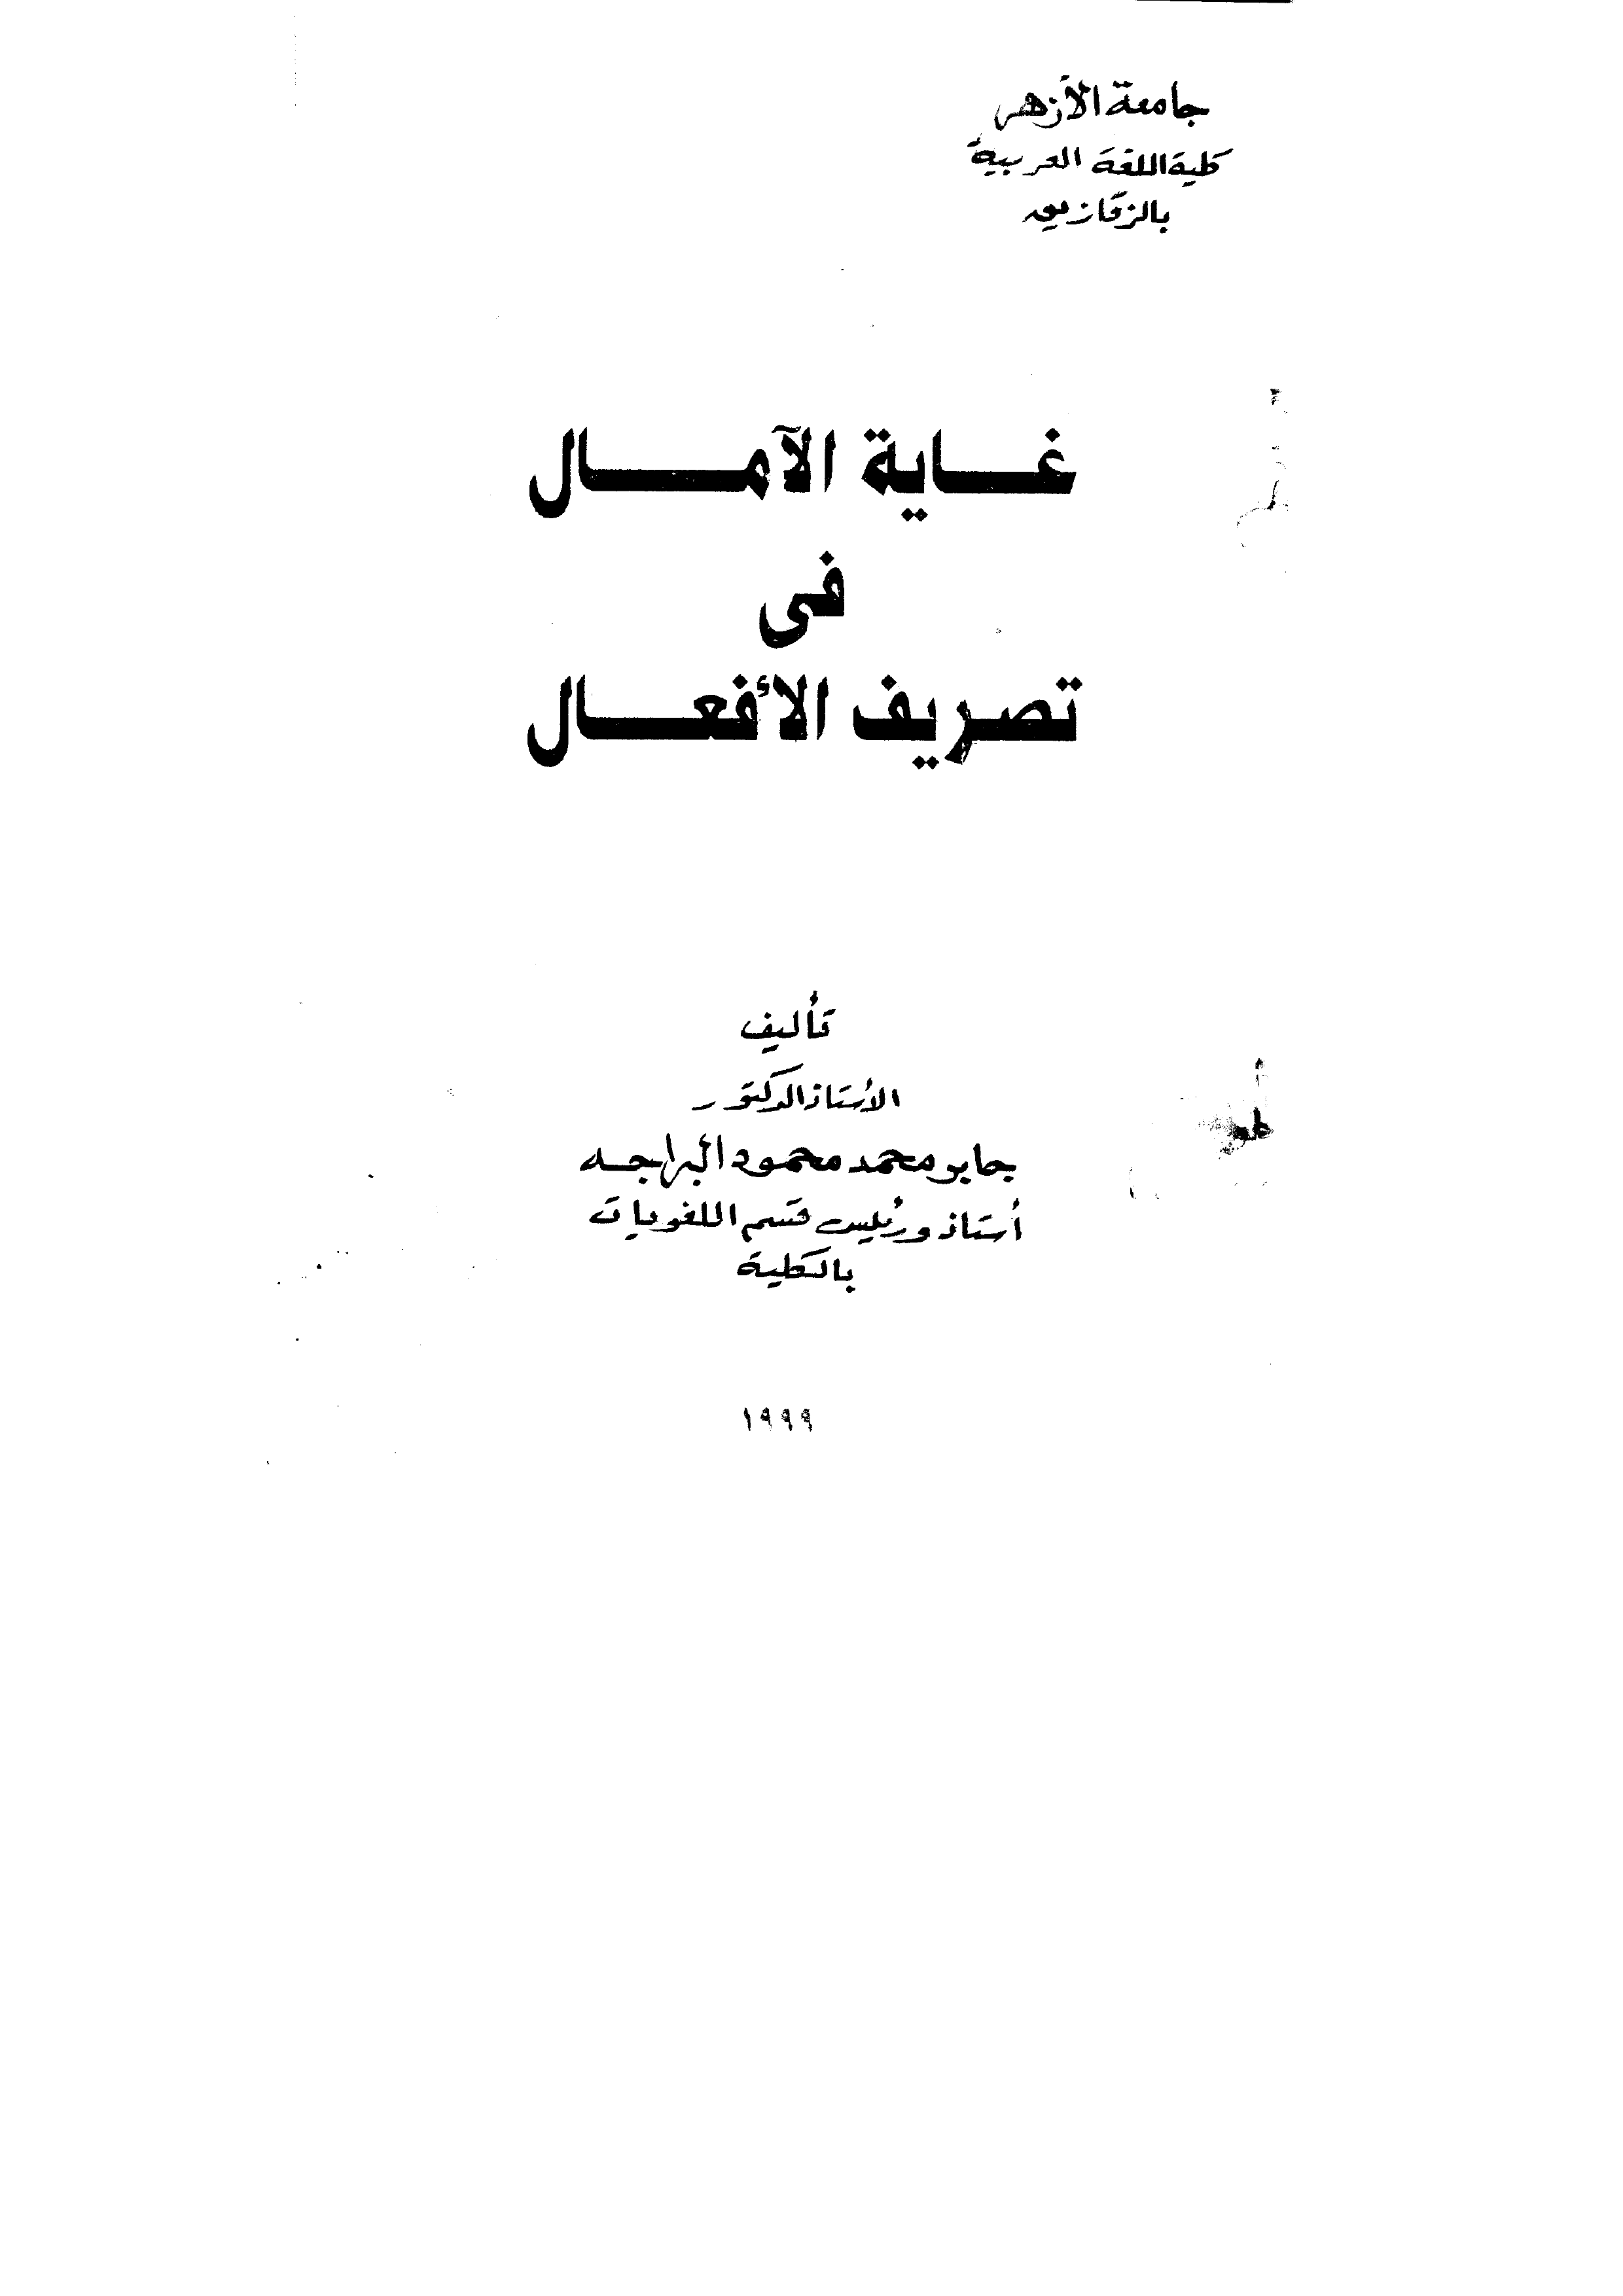 جامعة الأزهر
كلية اللغة العربية
بالزقازيق
غاية الآمال
فى
تصريف الأفعال
تأليف
الأستاذ الدكتور
جابر محمد محمود البراجه
أستاذ ورئيس قسم اللغويات
بالكلية
١٩٩٩